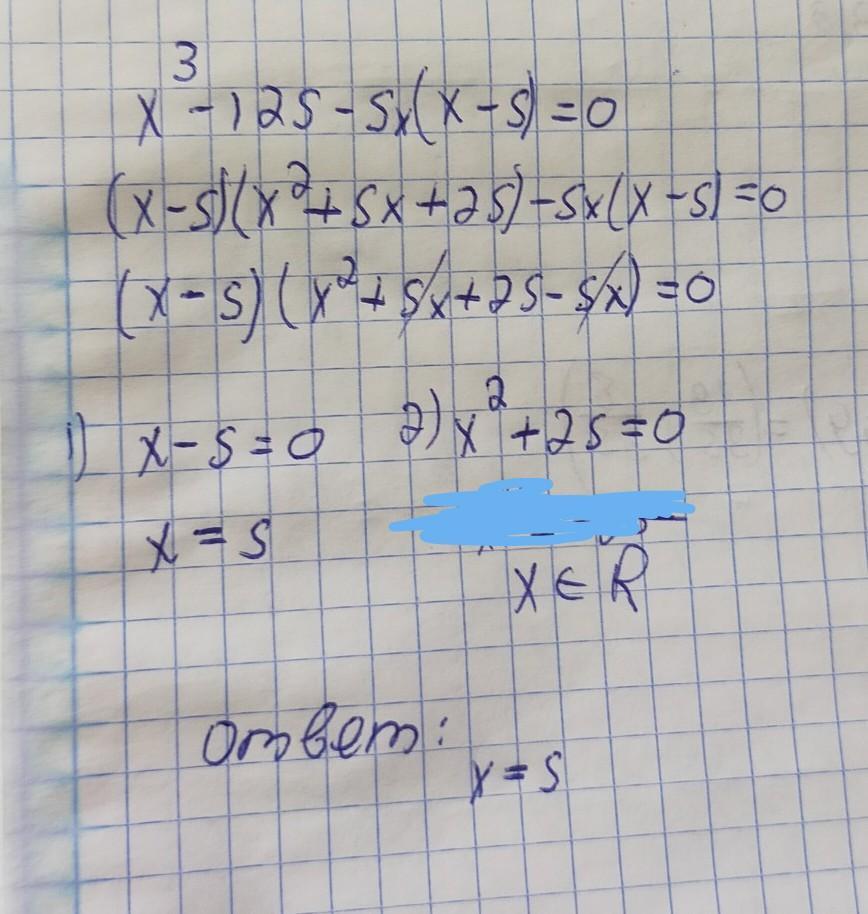 x³ - 125 - 5x(x - 5) = 0
(x - 5)(x² + 5x + 25) - 5x(x - 5) = 0
(x - 5)(x² + 5x + 25 - 5x) = 0
1) x - 5 = 0 2) x² + 25 = 0
x = 5
x ∈ R
Ответ:
x = 5